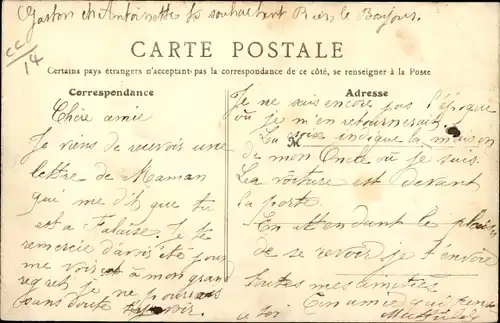 Gaston et Antoinette te souhaitent bien le Bonjour.
CC/14
CARTE POSTALE
Certains pays étrangers n'acceptant pas la correspondance de ce côté, se renseigner à la Poste
Correspondance
Chère amie
Je viens de recevoir une
lettre de Maman
qui me dit que tu
est a Falaise. Je te
remercie d'avoir été pour
me voir et à mon grand
regret je ne pourrais
sans doute
Adresse
Je ne sais encore pas l'époque
où je m'en retournerai.
La croix indique la maison
M
de mon Oncle où je suis.
La voiture est devant
la porte.
En attendant le plaisir
de se revoir je t'envoie
toutes mes amitiés
Ton amie qui pense
a toi